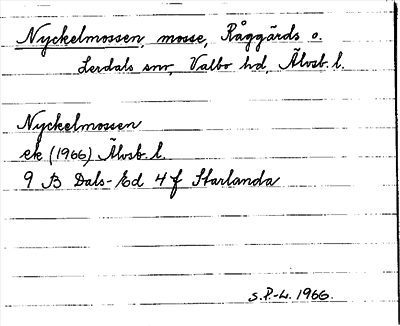 Nyckelmossen, mosse, Råggärds o.
Lerdals snr, Valbo hd, Älvsb. l.
Nyckelmossen
ek (1966) Älvsb. l.
9 B Dals-Ed 4 f Starlanda
S.P.-L. 1966.